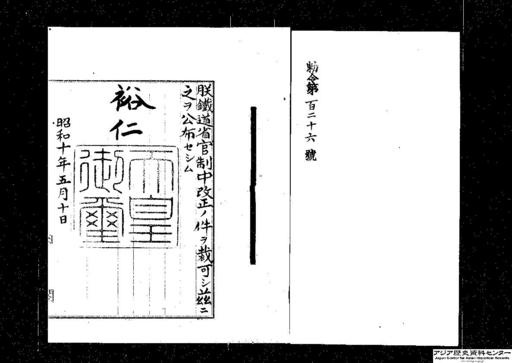 勅令第百二十六號
朕鐵道省官制中改正ノ件ヲ裁可シ茲ニ
之ヲ公布セシム
裕仁
天皇
御璽
昭和十年五月十日
内閣
アジア歴史資料センター
Japan Center for Asian Historical Records